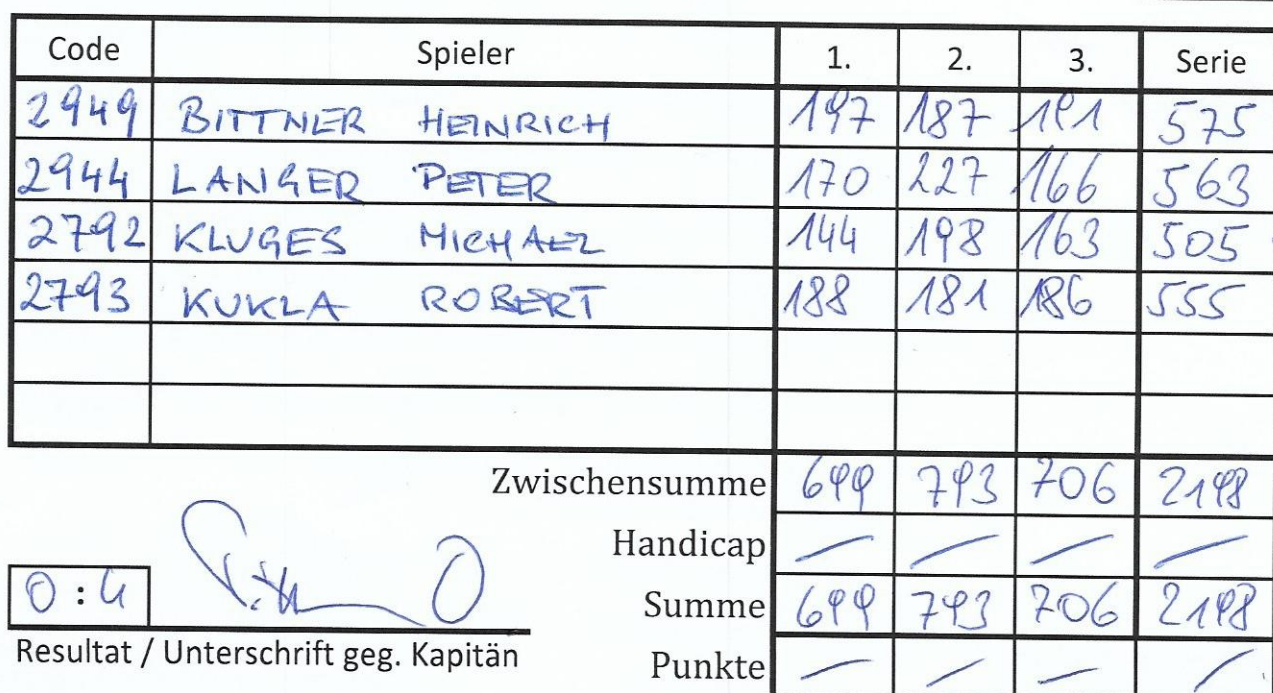 Code Spieler 1. 2. 3. Serie
2949 BITTNER HEINRICH 197 187 191 575
2944 LANGER PETER 170 227 166 563
2792 KLUGES MICHAEL 144 198 163 505
2793 KUKLA ROBERT 188 181 186 555
Zwischensumme 699 793 706 2198
Handicap — — — —
0 : 4 Summe 699 793 706 2198
Resultat / Unterschrift geg. Kapitän Punkte — — — —